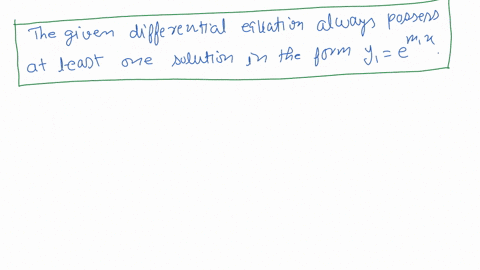 The given differential equation always possess
at least one solution in the form y₁ = e^{m₁x}.